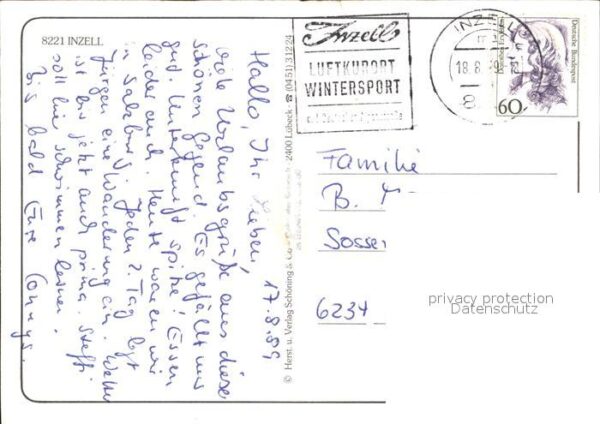 8221 INZELL
17.8.89
Hallo, Ihr Lieben,
viele Urlaubsgrüße aus dieser
schönen Gegend. Es gefällt uns
gut. Unterkunft spitze! Essen
leider auch. Heute waren wir
in Salzburg. Jeden 2. Tag
Jürgen eine Wanderung an. Wetter
ist bis jetzt auch prima. Steffi
soll hier schwimmen lernen.
Bis bald Eure
© Herst. u. Verlag Schöning & Co 2400 Lübeck ☎ (0451) 31224
Inzell
LUFTKURORT
WINTERSPORT
INZELL
18.8.
8
Deutsche Bundespost
60
Familie
B.
Sosser
6234
privacy protection
Datenschutz